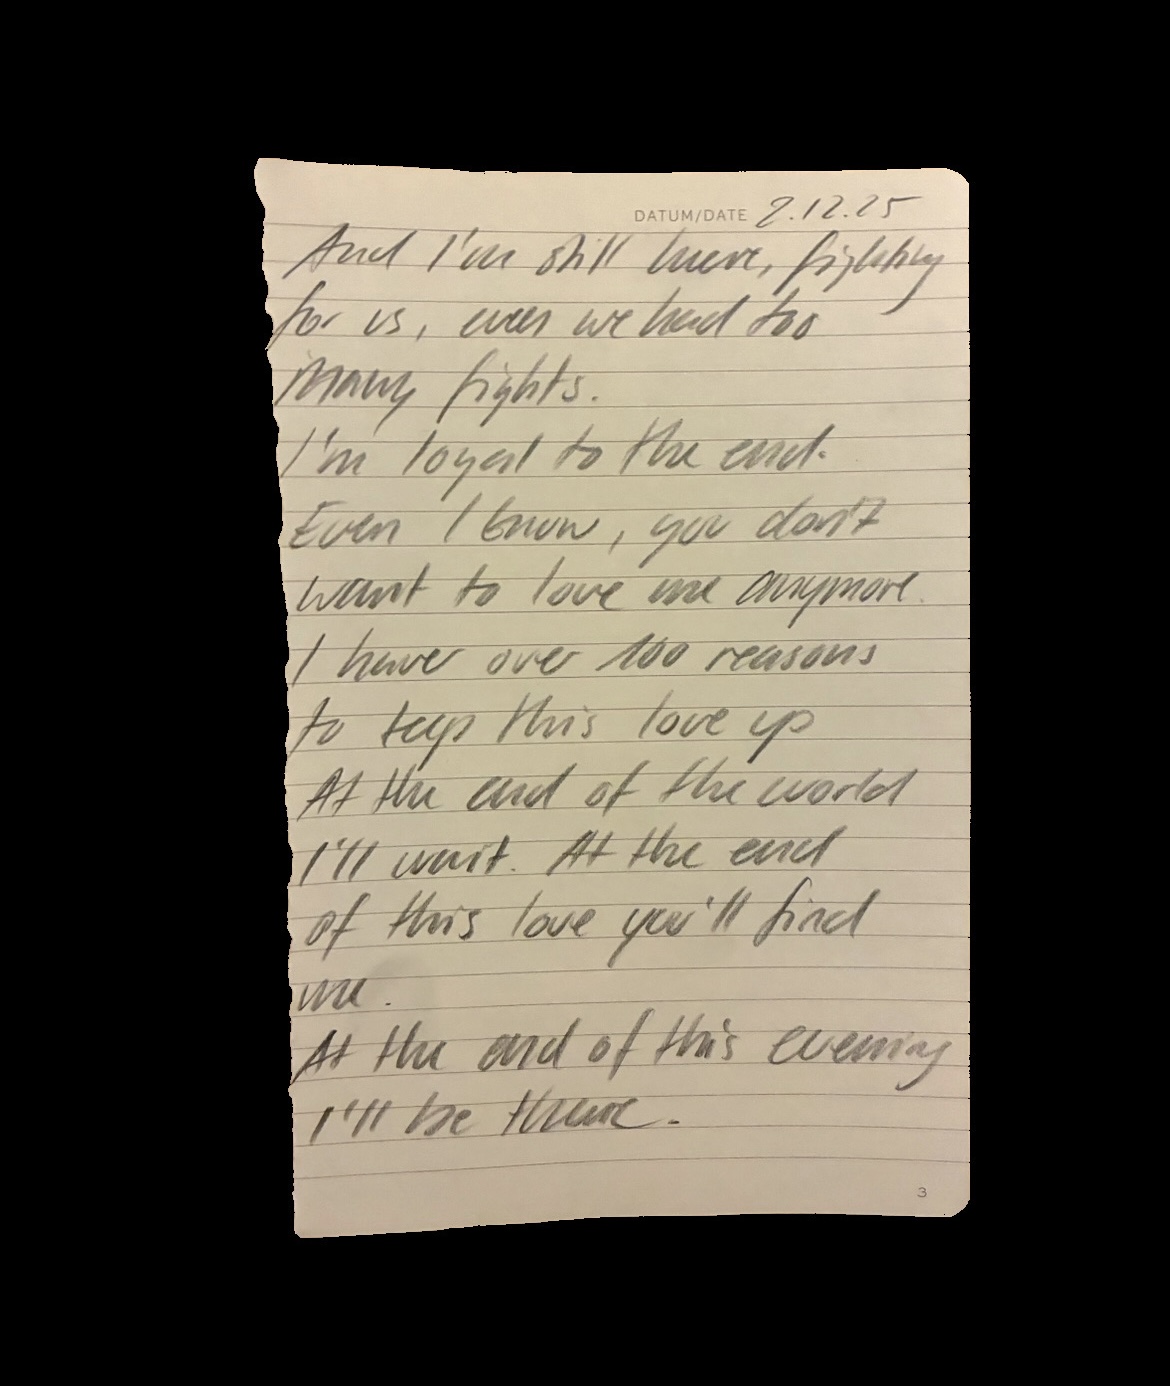 DATUM/DATE 2.12.25
And I'm still here, fighting
for us, even we had too
many fights.
I'm loyal to the end.
Even I know, you don't
want to love me anymore.
I have over 100 reasons
to keep this love up
At the end of the world
I'll wait. At the end
of this love you'll find
me.
At the end of this evening
I'll be there.
3